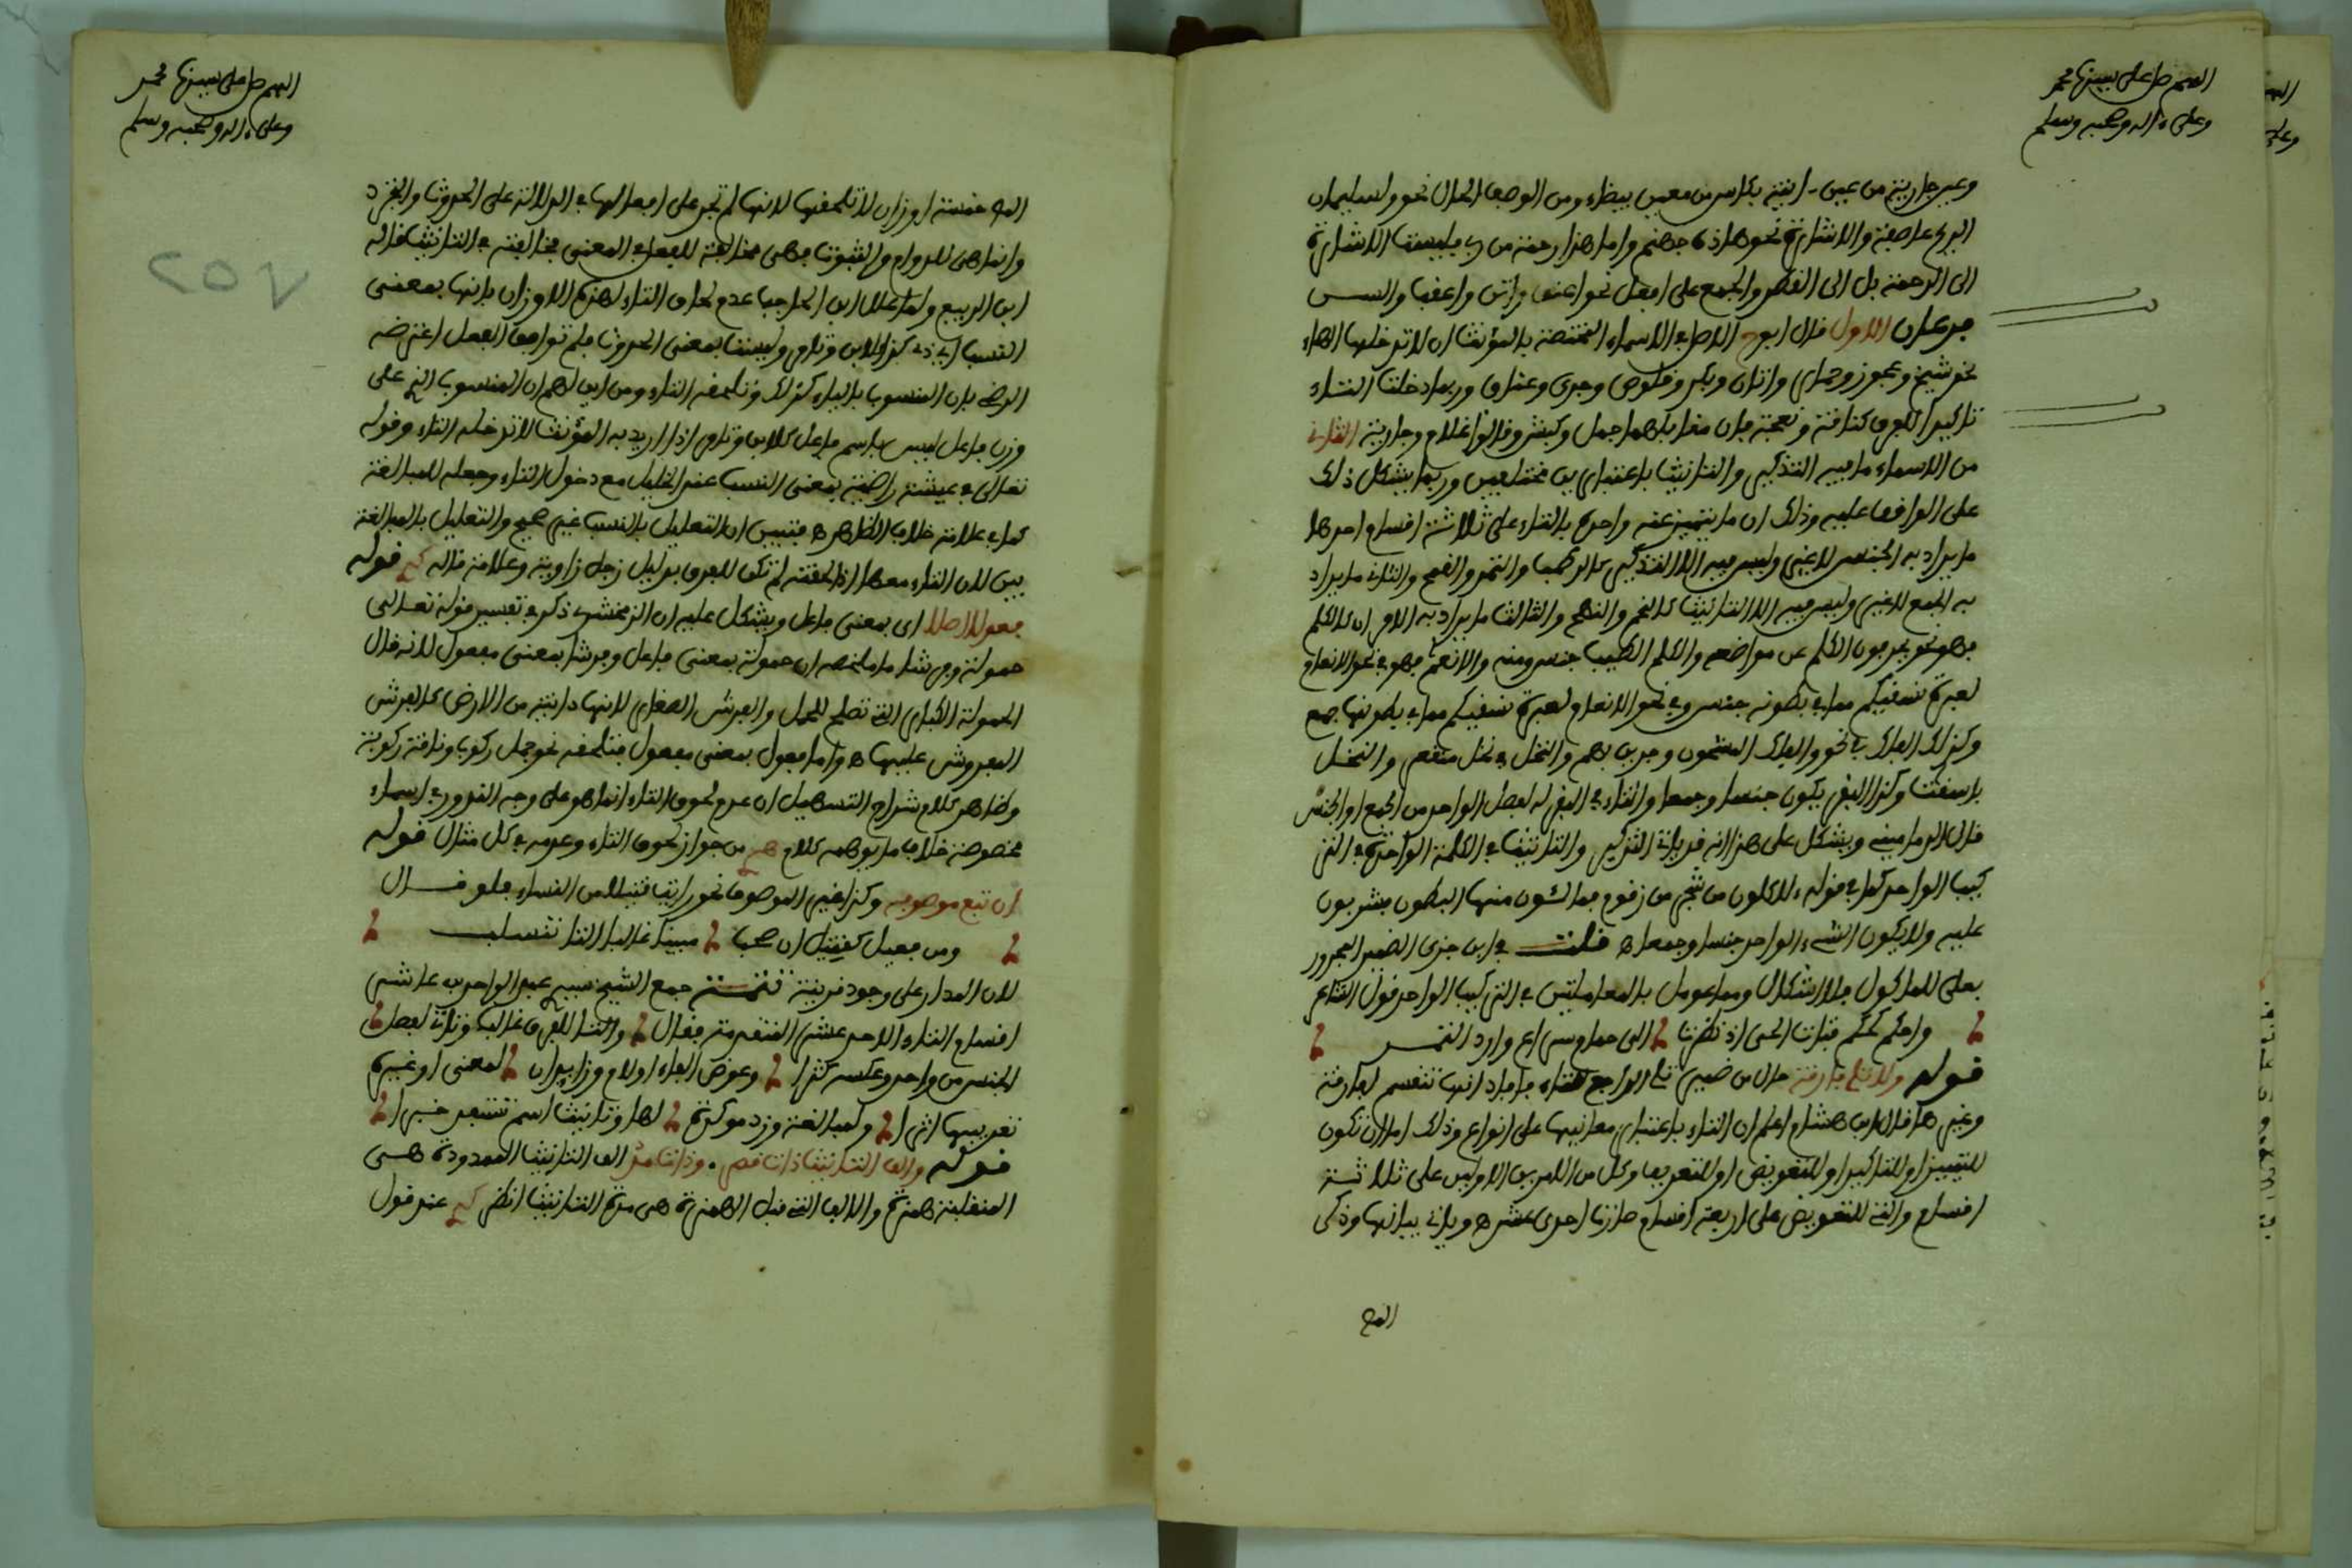 اللهم صل على سيدنا محمد
وعلى ءاله وصحبه وسلم
وعبر جارية من عين ءانية بكاس من معين بيضاء ومن الوصف الحال نحو ولسليمان
الريح عاصفة والاشارة نحو هذه جهنم واما هذا رحمة من ربي فليست الاشارة
الى الرحمة بل الى القطر والجمع على افعل نحو اعنق واتن واعقب والسن
فرعان الاول قال ابوح الاصل في الاسماء المختصة بالمؤنث ان لا تدخلها الهاء
نحو شيخ وعجوز وحمار واتان وبكر وقلوص وجدي وعناق وربما دخلت التاء
تاكيدا للفرق كناقة ونعجة فان مقابلهما جمل وكبش وقالوا غلام وجارية الثاني
من الاسماء ما فيه التذكير والتانيث باعتبارين مختلفين وربما يشكل ذلك
على الواقف عليه وذلك ان ما يتميز عنه واحده بالتاء على ثلاثة اقسام احدها
ما يراد به الجنس لا غير وليس فيه الا التذكير كالرطب والتمر والقمح والثاني ما يراد
به الجمع لا غير وليس فيه الا التانيث كالتخم والتهم والثالث ما يراد به الامران كالكلم
فهو نحو يحرفون الكلم عن مواضعه والكلم الطيب جنس ومنه والانعم فهو في نحو الانعام
لعبرة نسقيكم مما في بطونه جنس وفي نحو الانعام لعبرة نسقيكم مما في بطونها جمع
وكذلك الفلك في نحو والفلك المشحون وجرين بهم والنخل في نخل منقعر والنخل
باسقات وكذا البقر يكون جنسا وجمعا والتاء في البقر له لفصل الواحد من الجمع او الجنس
قال الدماميني ويشكل على هذا انه قد ياتي التذكير والتانيث في الكلمة الواحدة في التر
كيب الواحد كما في قوله ءلاكلون من شجر من زقوم فمالئون منها البطون فشربون
عليه ولا يكون الشيء الواحد جنسا وجمعا اه قلت في ابن جزى الضمير المجرور
بعلى للماكول فلا اشكال ومما عومل بالمعاملتين في التركيب الواحد قول الشاعر
واحكم كحكم فتاة الحي اذ نظرت الى حمام سراع وارد الثمد
قوله ولا تلي فارقة حال من ضمير تلي الراجع للتاء فافاد انها تنقسم لفارقة
وغيرها قال ابن هشام اعلم ان التاء باعتبار معانيها على انواع وذلك اما ان تكون
للتمييز او للتاكيد او للتعويض او للتعريب وكل من الامرين الاولين على ثلاثة
اقسام والتي للتعويض على اربعة اقسام صارت احدى عشر اه وياتي بيانها وذكر
اللهم صل على سيدنا محمد
وعلى ءاله وصحبه وسلم
خمسة اوزان لا تلحقها لانها لم تجر على افعالها في الدلالة على الحدوث والتجدد
وانما هي للدوام والثبوت فهي مخالفة للفعل في المعنى مخالفة في التانيث قاله
ابن الربيع ولما علل ابن الحاجب عدم لحاق التاء لهذه الاوزان بانها بمعنى
النسب اي ذي كذا كلابن وتامر وليست بمعنى الحدوث فلم توافق الفعل اعترضه
الرضي بان المنسوب بالياء كذلك وتلحقه التاء ومن اين لهم ان المنسوب الذي على
وزن فاعل ليس باسم فاعل كلابن وتامر اذا اريد به المؤنث لا تدخله التاء وقوله
تعالى في عيشة راضية بمعنى النسب عند الخليل مع دخول التاء وجعله للمبالغة
كما في علامة خلاف الظاهر اه فتبين ان التعليل بالنسب غير صحيح والتعليل بالمبالغة
بين لان التاء معها اذا لحقت لم تكن للفرق بدليل رجل راوية وعلامة قاله قوله
فعولا اصلا اي بمعنى فاعل ويشكل عليه ان الزمخشري ذكر في تفسير قوله تعالى
حمولة وفرشا ما ملخصه ان حمولة بمعنى فاعل وفرشا بمعنى مفعول لانه قال
الحمولة الكبار التي تصلح للحمل والفرش الصغار لانها دانية من الارض كالفرش
المفروش عليها اه واما فعول بمعنى مفعول فتلحقه نحو جمل ركوب وناقة ركوبة
وظاهر كلام شراح التسهيل ان عدم لحوق التاء انما هو على وجه الندور في اسماء
مخصوصة خلاف ما يوهمه كلام من جواز لحوق التاء وعدمه في كل مثال قوله
ان تبع موصوفه وكذا غير الموصوف نحو رايت قتيلا من النساء فلو قال
ومن فعيل كقتيل ان صحب مبينا غالبا التا تنسلب
لان المدار على وجود قرينة تتمة جمع الشيخ سيدي عبد الواحد بن عاشر
اقسام التاء الاحد عشر المتقدمة فقال والتا للفرق غالبا وتاتي لفصل
الجنس من واحد وعكسه كثرا وعوض الفاء او لام وزايدان لمعنى او غيره
تعريبها اثرا وكمبالغة وزد موكدة لها وتانيث اسم تتبعر خبرا
قوله والف التانيث ذات قصر . وذات مد الف التانيث الممدودة هي
المنقلبة همزة والالف التي قبل الهمزة هي مدة التانيث انظر عند قول